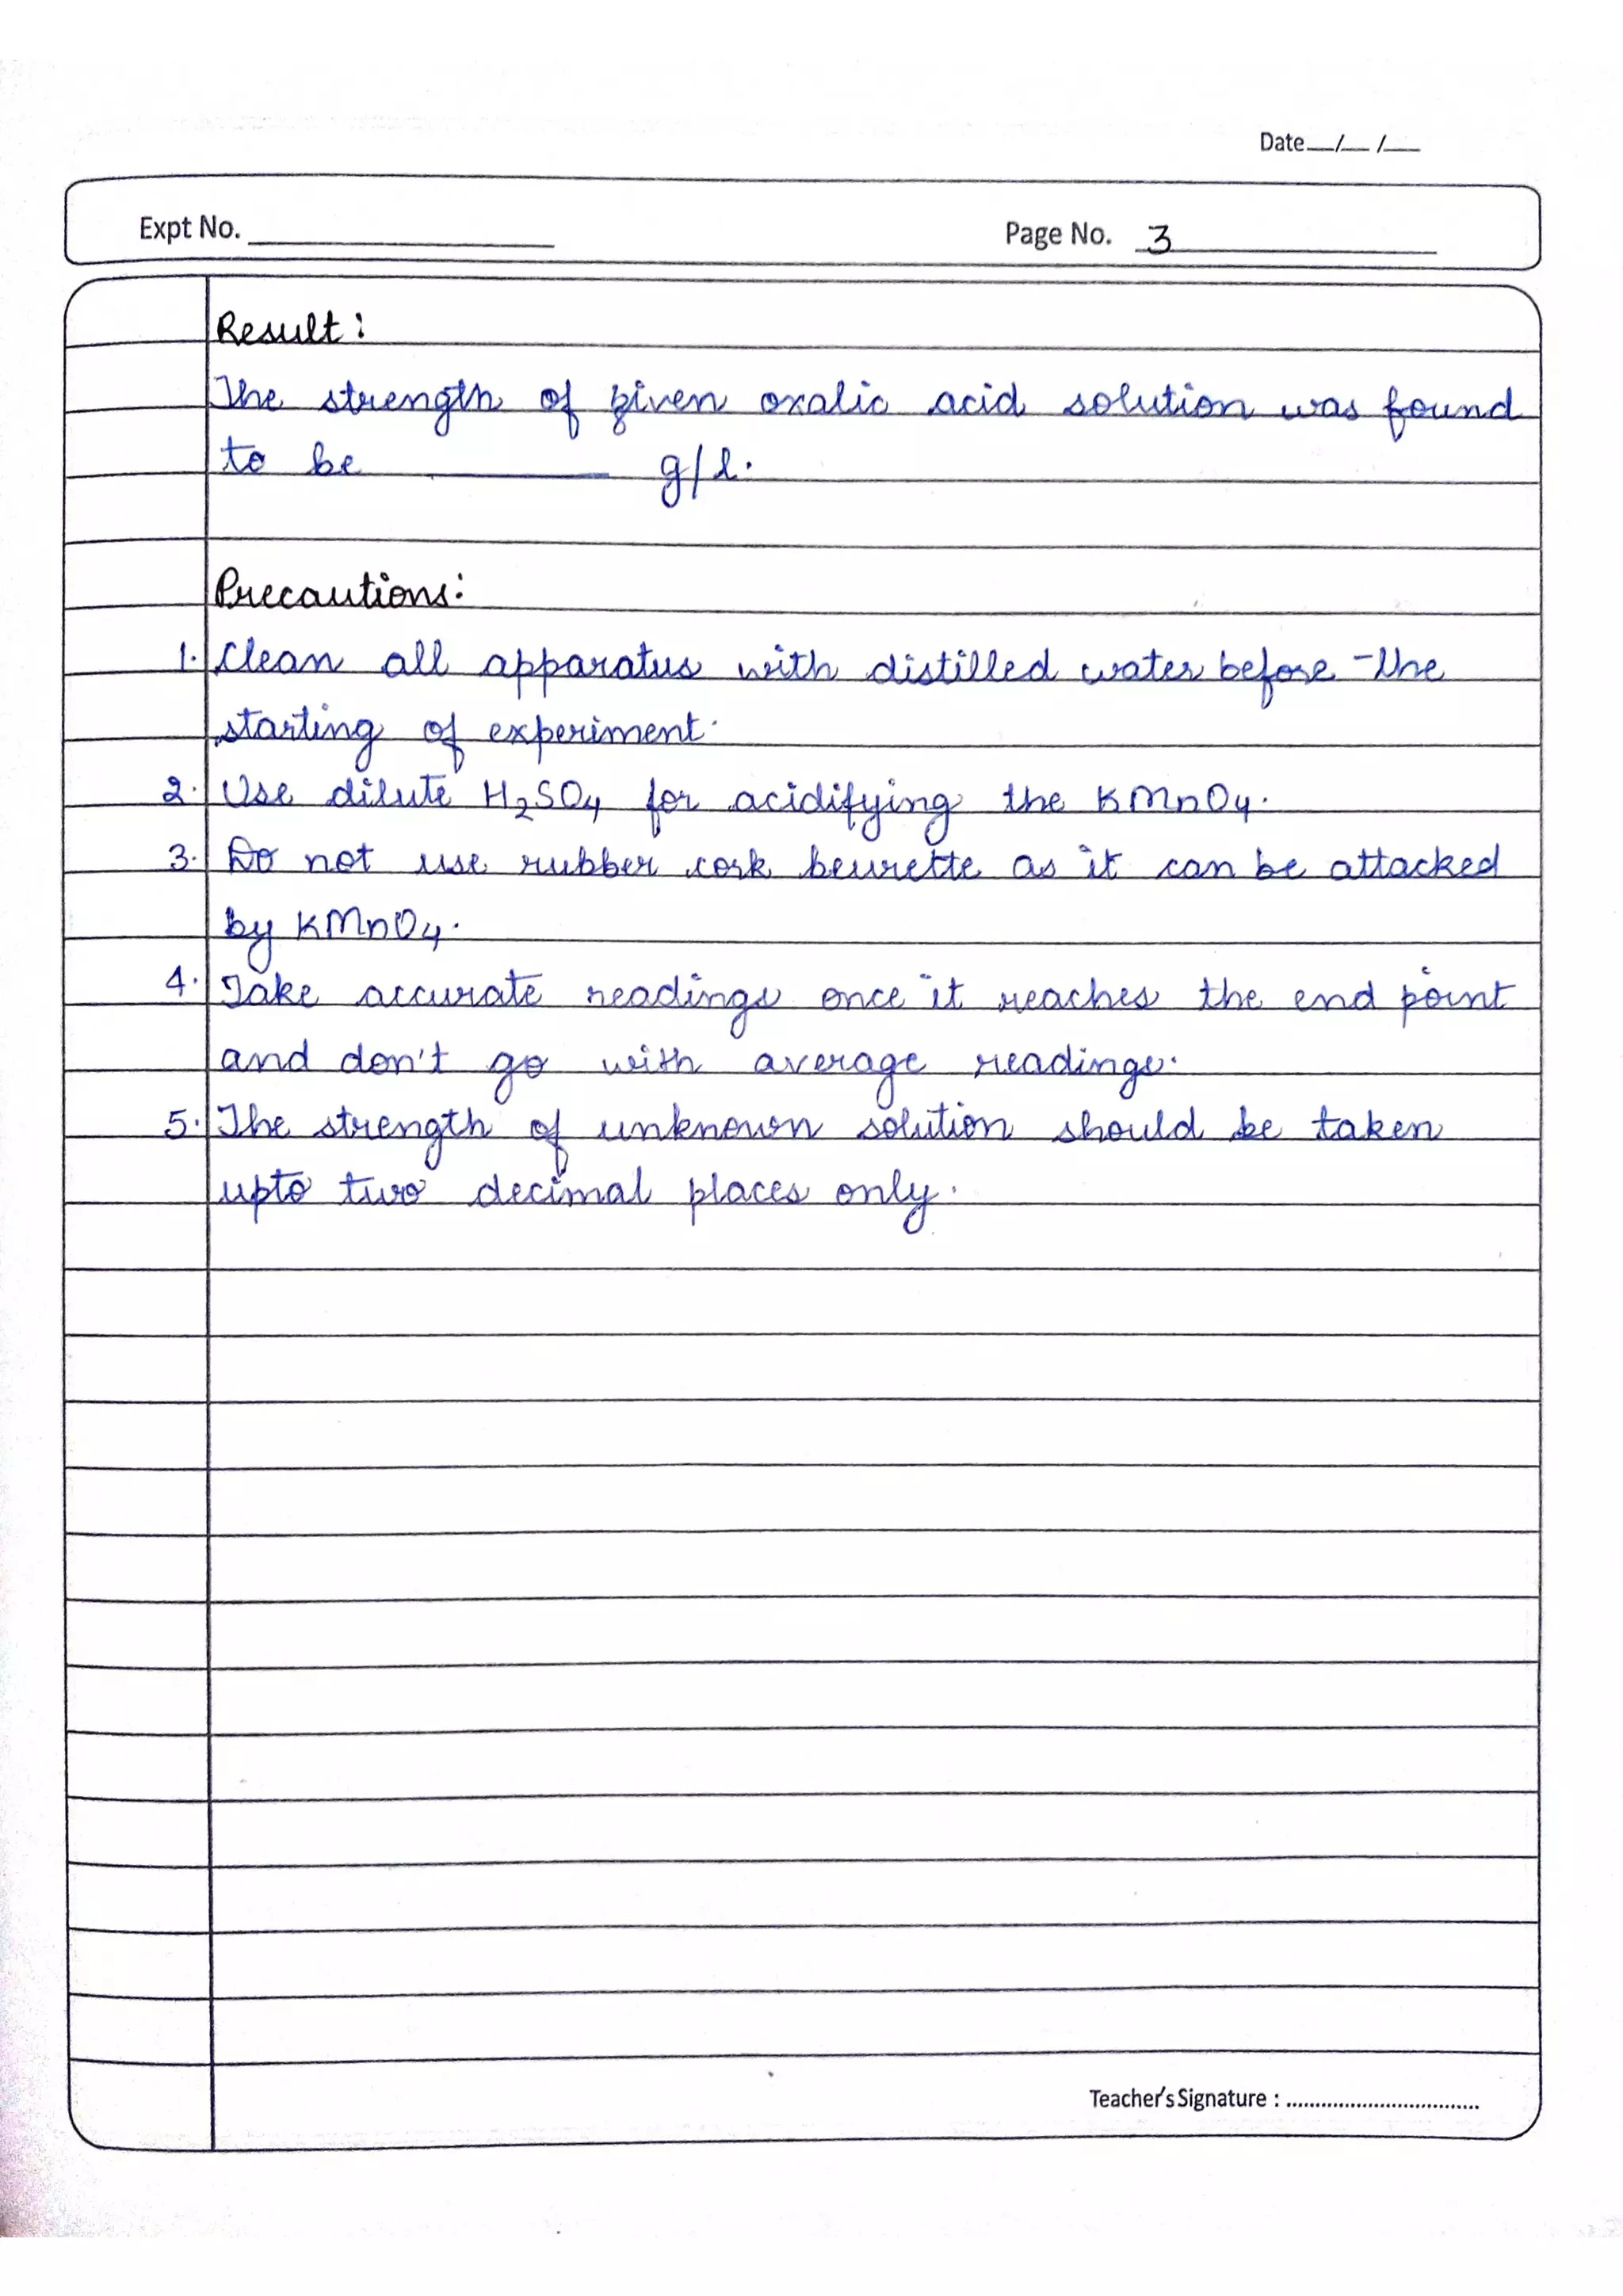 Date__/__ /__
Expt No. ____________
Page No. 3
Result:
The strength of given oxalic acid solution was found
to be ________ g/l.
Precautions:
1. Clean all apparatus with distilled water before the
starting of experiment.
2. Use dilute H₂SO₄ for acidifying the KMnO₄.
3. Do not use rubber cork beurette as it can be attacked
by KMnO₄.
4. Take accurate readings once it reaches the end point
and don't go with average readings.
5. The strength of unknown solution should be taken
upto two decimal places only.
Teacher's Signature : .................................